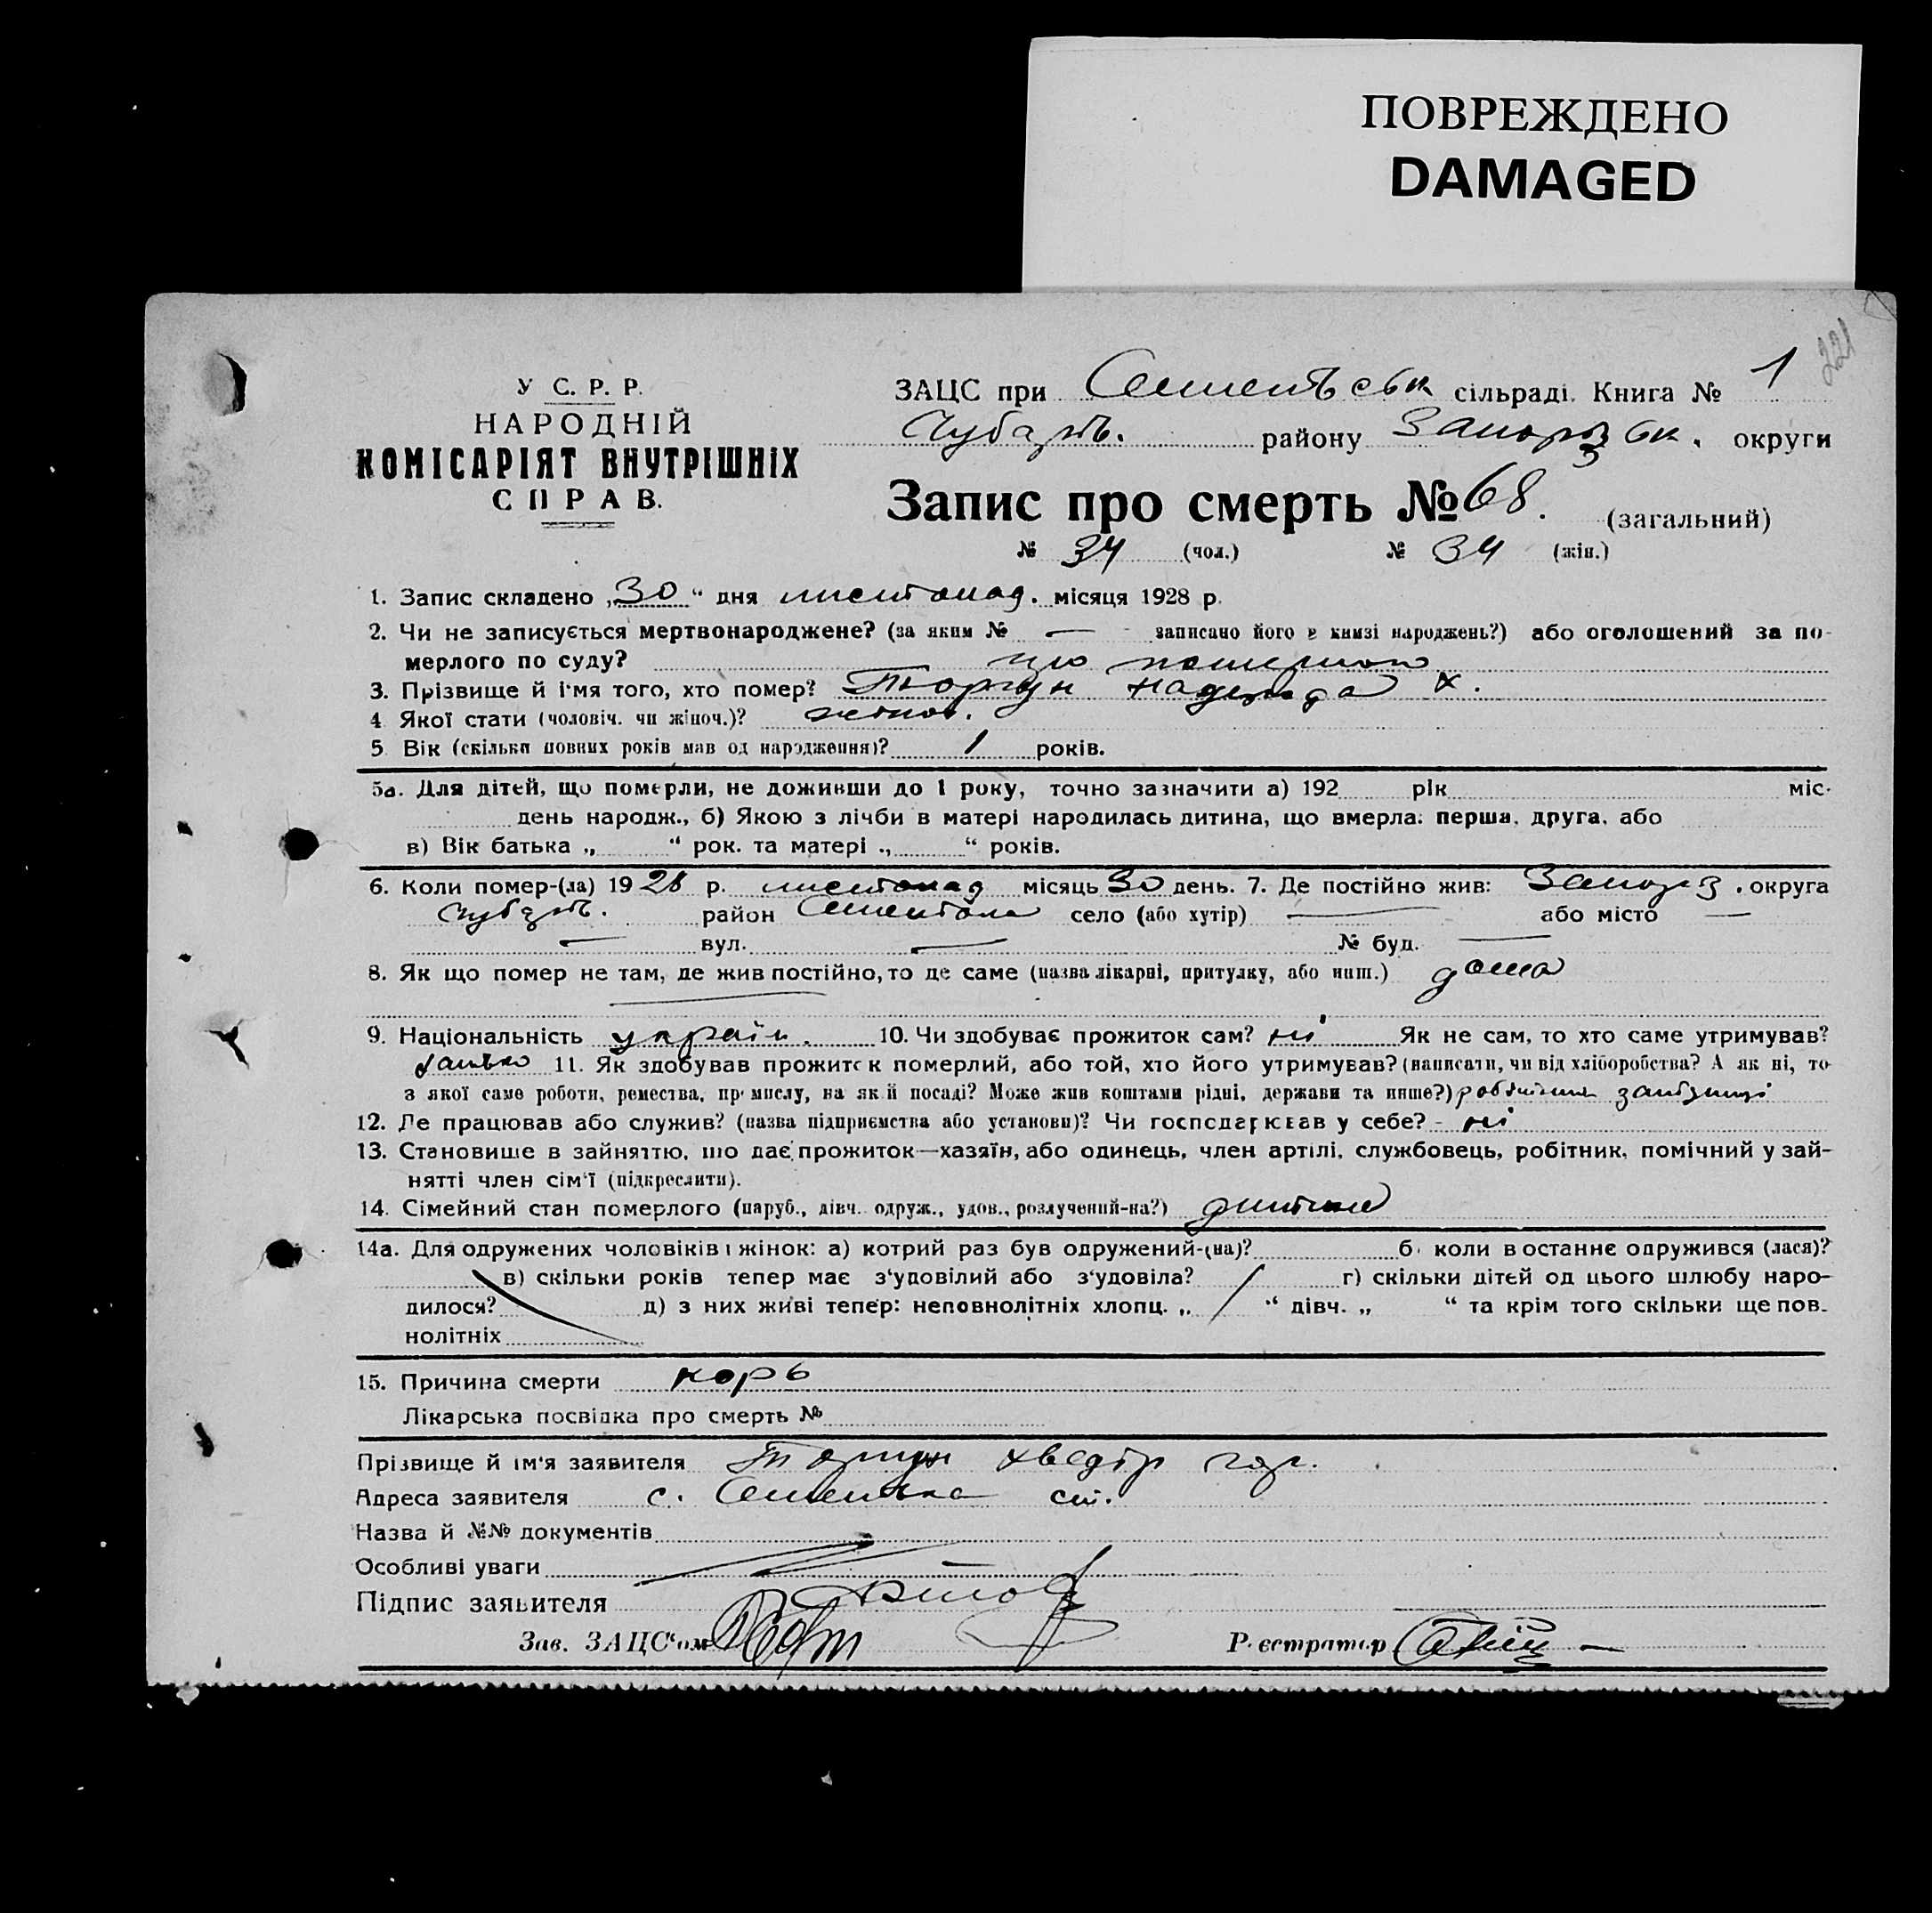 ПОВРЕЖДЕНО
DAMAGED
221
У С. Р. Р.
НАРОДНІЙ
КОМІСАРІЯТ ВНУТРІШНІХ
СПРАВ.
ЗАЦС при сільраді. Книга № 1
Чубарів. району Запорізьк. округи
Запис про смерть № 68. (загальний)
№ 34 (чол.) № 34 (жін.)
1. Запис складено „30“ дня листопад. місяця 1928 р.
2. Чи не записується мертвонароджене? (за яким № — записано його в книзі народжень?) або оголошений за по-
мерлого по суду? про
3. Прізвище й ім'я того, хто помер? Торгун Надежда Х.
4. Якої стати (чоловіч. чи жіноч.)? жіноч.
5. Вік (скільки повних років мав од народження)? 1 років.
5а. Для дітей, що померли, не доживши до 1 року, точно зазначити а) 192 рік міс.
день народж., б) Якою з лічби в матері народилась дитина, що вмерла: перша, друга, або
в) Вік батька „ “ рок. та матері „ “ років.
6. Коли помер-(ла) 1928 р. листопад місяць 30 день. 7. Де постійно жив: Запоріз. округа
Чубарів. район село (або хутір) — або місто —
— вул. — № буд. —
8. Як що помер не там, де жив постійно, то де саме (назва лікарні, притулку, або инш.) дома
9. Національність україн. 10. Чи здобуває прожиток сам? ні Як не сам, то хто саме утримував?
батько 11. Як здобував прожиток померлий, або той, хто його утримував? (написати, чи від хліборобства? А як ні, то
з якої саме роботи, ремества, промислу, на якій посаді? Може жив коштами рідні, держави та инше?)
12. Де працював або служив? (назва підприємства або установи)? Чи господарював у себе? - ні
13. Становище в зайняттю, що дає прожиток—хазяїн, або одинець, член артілі, службовець, робітник, помічний у зай-
нятті член сім'ї (підкреслити).
14. Сімейний стан померлого (паруб., дівч. одруж., удов., розлучений-на?) дитина
14а. Для одружених чоловіків і жінок: а) котрий раз був одружений-(на)? б) коли в останнє одружився (лася)?
в) скільки років тепер має з'удовілий або з'удовіла? г) скільки дітей од цього шлюбу наро-
дилося? д) з них живі тепер: неповнолітніх хлопц. „ “ дівч. „ “ та крім того скільки ще пов-
нолітніх
15. Причина смерти корь
Лікарська посвідка про смерть №
Прізвище й ім'я заявителя Торгун Хведір
Адреса заявителя с.
Назва й №№ документів
Особливі уваги
Підпис заявителя
Зав. ЗАЦС'ом Реєстратор